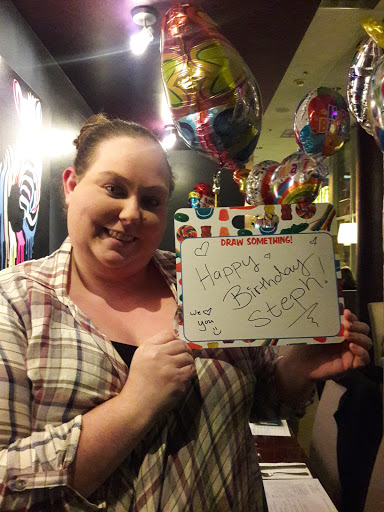 DRAW SOMETHING!
Happy
Birthday
Steph!
we ♡
you